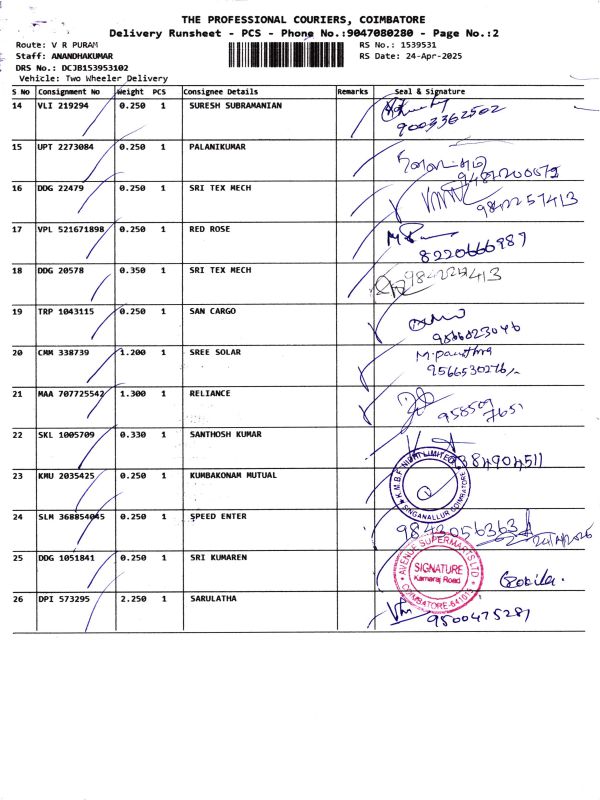 THE PROFESSIONAL COURIERS, COIMBATORE
Delivery Runsheet - PCS - Phone No.:9047080280 - Page No.:2
Route: V R PURAM
RS No.: 1539531
Staff: ANANDHAKUMAR
RS Date: 24-Apr-2025
DRS No.: DCJB153953102
Vehicle: Two Wheeler Delivery
S No Consignment No Weight PCS Consignee Details Remarks Seal & Signature
14 VLI 219294 0.250 1 SURESH SUBRAMANIAN
9003362502
15 UPT 2273084 0.250 1 PALANIKUMAR
16 DDG 22479 0.250 1 SRI TEX MECH
9842257413
17 VPL 521671898 0.250 1 RED ROSE
8220666989
18 DDG 20578 0.350 1 SRI TEX MECH
19 TRP 1043115 0.250 1 SAN CARGO
9566023046
20 CMM 338739 1.200 1 SREE SOLAR
9566530276/-
21 MAA 707725542 1.300 1 RELIANCE
958509
7651
22 SKL 1005709 0.330 1 SANTHOSH KUMAR
23 KMU 2035425 0.250 1 KUMBAKONAM MUTUAL
K.M.B.F. NIDHI LIMITED
SINGANALLUR COIMBATORE
24 SLM 368854045 0.250 1 SPEED ENTER
9842056363
25 DDG 1051841 0.250 1 SRI KUMAREN
AVENUE SUPERMARTS LTD
SIGNATURE
Kamaraj Road
COIMBATORE-641015
Gokila.
26 DPI 573295 2.250 1 SARULATHA
9500475281